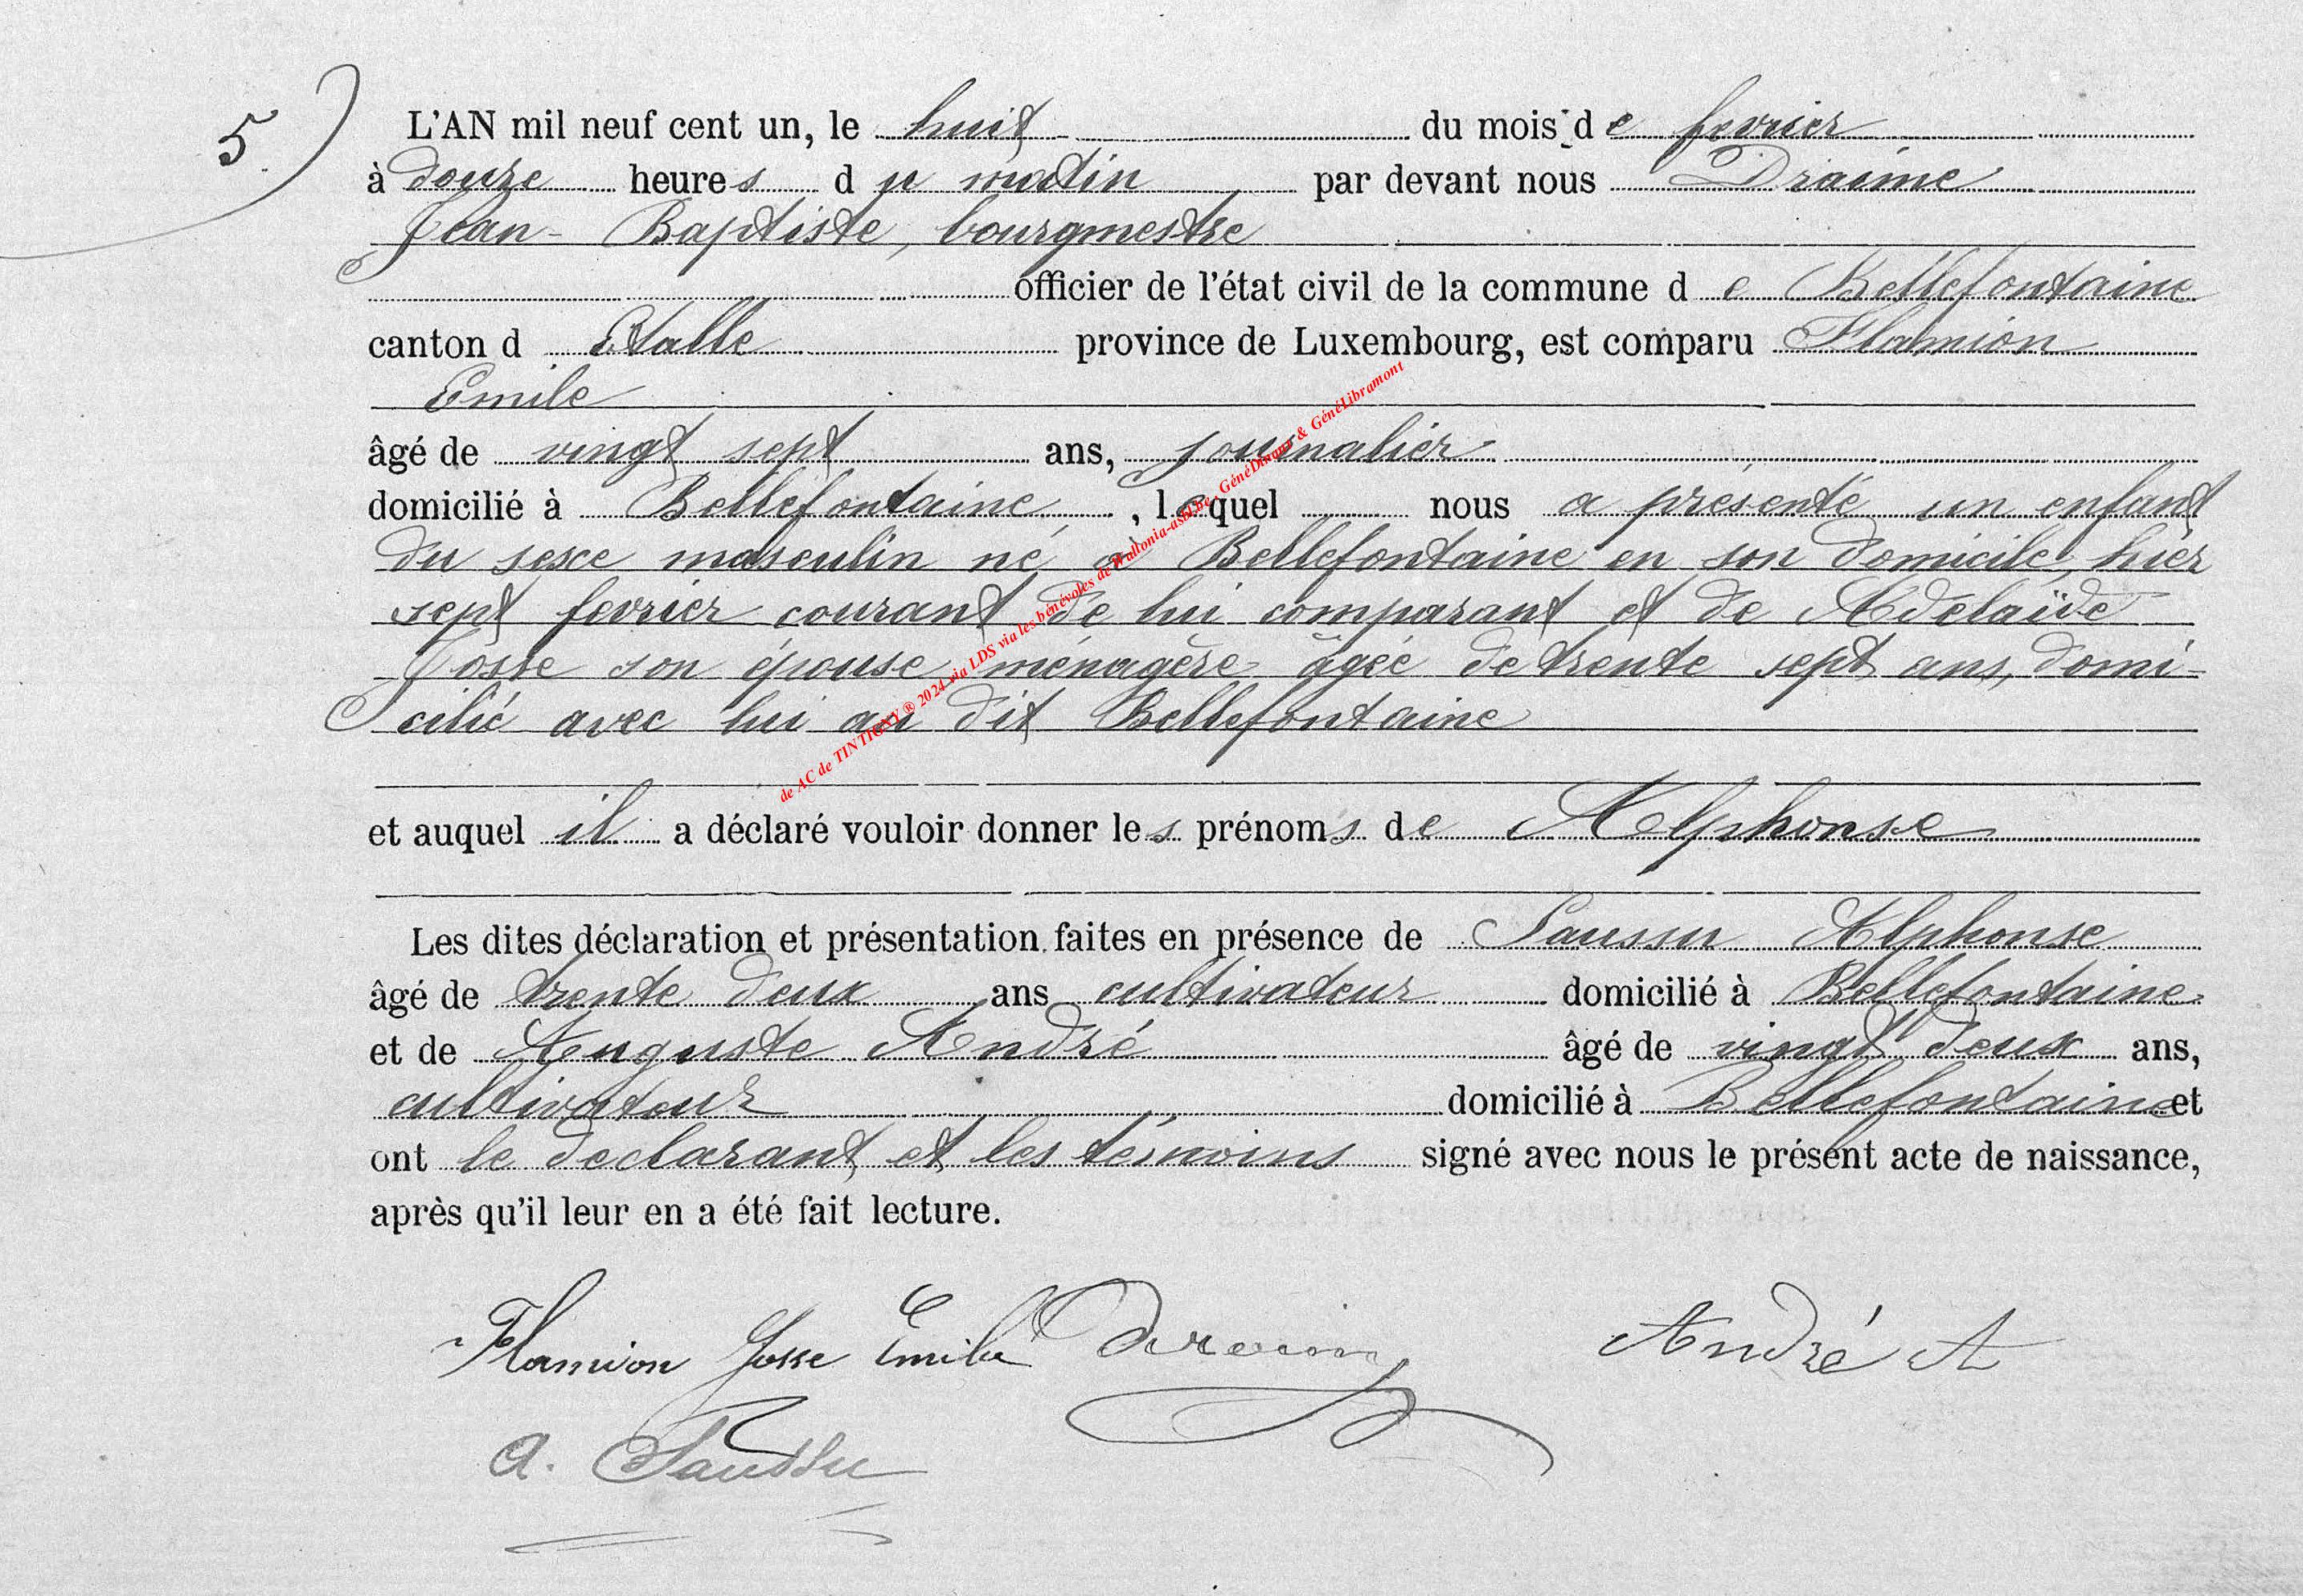 5
L'AN mil neuf cent un, le huit du mois de fevrier
à douze heures du matin par devant nous Draime
Jean-Baptiste, bourgmestre
officier de l'état civil de la commune de Bellefontaine
canton d Etalle province de Luxembourg, est comparu Flamion
Emile
âgé de vingt sept ans, journalier
domicilié à Bellefontaine, lequel nous a présenté un enfant
du sexe masculin né à Bellefontaine en son domicile, hier
sept fevrier courant de lui comparant et de Adelaïde
Josse son épouse ménagère âgée de trente sept ans, domi-
cilié avec lui au dit Bellefontaine
et auquel il a déclaré vouloir donner les prénoms de Alphonse
Les dites déclaration et présentation faites en présence de Saussu Alphonse
âgé de trente deux ans cultivateur domicilié à Bellefontaine
et de Auguste André âgé de vingt deux ans,
cultivateur domicilié à Bellefontaine et
ont le declarant et les témoins signé avec nous le présent acte de naissance,
après qu'il leur en a été fait lecture.
Flamion Josse Emile Draime André A
a. Saussu
de AC de TINTIGNY ® 2024 via LDS via les bénévoles de Wallonia-asbl.be, GénéDinant & GénéLibramont